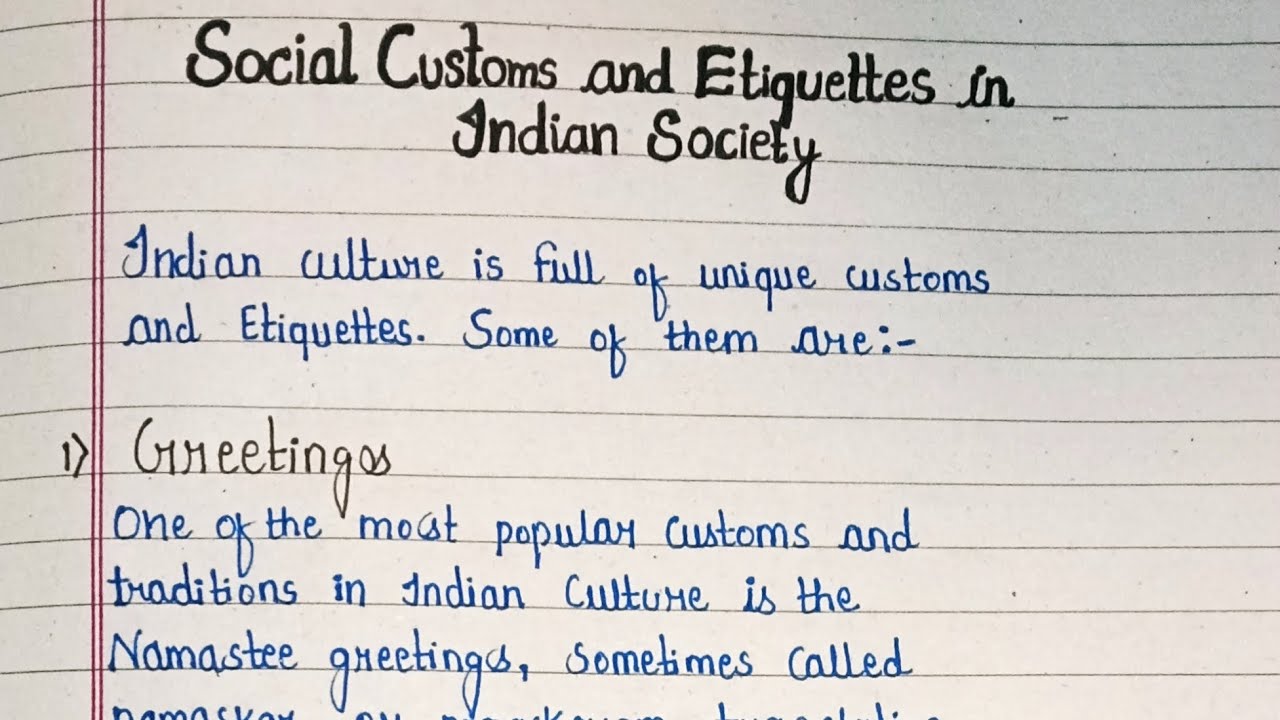 Social Customs and Etiquettes in
Indian Society
Indian culture is full of unique customs
and Etiquettes. Some of them are:-
1) Greetings
One of the most popular customs and
traditions in Indian Culture is the
Namastee greetings, sometimes called